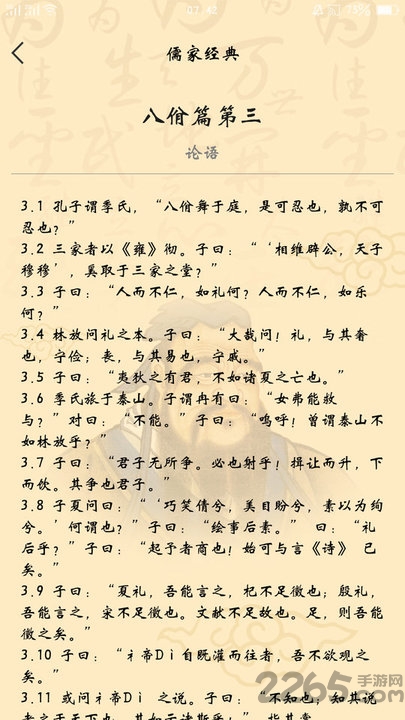 07:42
73%
儒家经典
八佾篇第三
论语
3.1 孔子谓季氏，“八佾舞于庭，是可忍也，孰不可
忍也？”
3.2 三家者以《雍》彻。子曰：“‘相维辟公，天子
穆穆’，奚取于三家之堂？”
3.3 子曰：“人而不仁，如礼何？人而不仁，如乐
何？”
3.4 林放问礼之本。子曰：“大哉问！礼，与其奢
也，宁俭；丧，与其易也，宁戚。”
3.5 子曰：“夷狄之有君，不如诸夏之亡也。”
3.6 季氏旅于泰山。子谓冉有曰：“女弗能救
与？”对曰：“不能。”子曰：“呜呼！曾谓泰山不
如林放乎？”
3.7 子曰：“君子无所争。必也射乎！揖让而升，下
而饮。其争也君子。”
3.8 子夏问曰：“‘巧笑倩兮，美目盼兮，素以为绚
兮。’何谓也？”子曰：“绘事后素。” 曰：“礼
后乎？”子曰：“起予者商也！始可与言《诗》 已
矣。”
3.9 子曰：“夏礼，吾能言之，杞不足徵也；殷礼，
吾能言之，宋不足徵也。文献不足故也。足，则吾能
徵之矣。”
3.10 子曰：“礻帝Dì自既灌而往者，吾不欲观之
矣。”
3.11 或问礻帝Dì 之说。子曰：“不知也；知其说
者之于天下也，其如示诸斯乎！”指其掌
2265.com
手游网